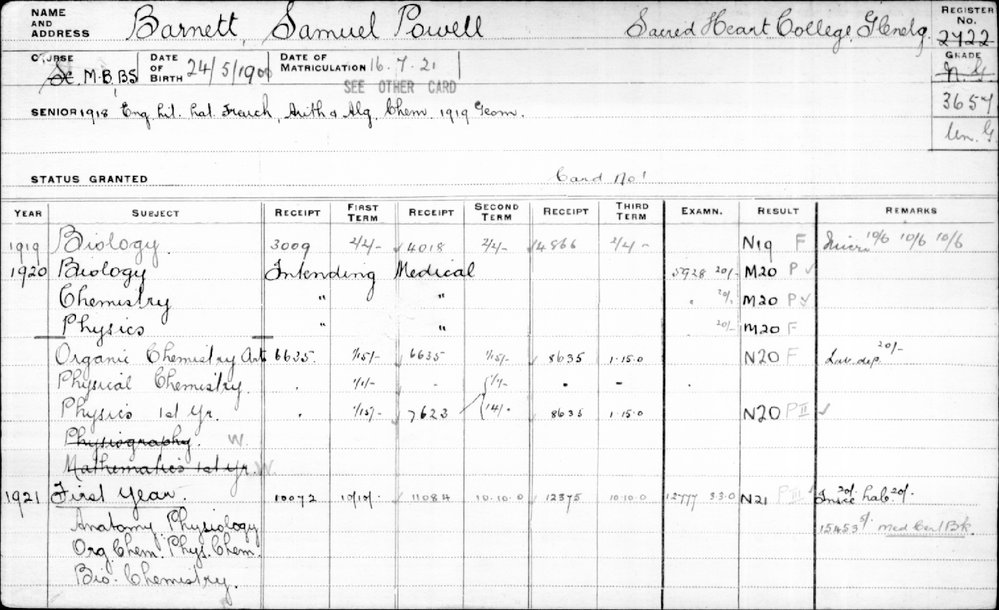 NAME AND ADDRESS Barnett, Samuel Powell Sacred Heart College, Glenelg. REGISTER No. 2722
COURSE Sc. M.B., B.S. DATE OF BIRTH 24/5/1900 DATE OF MATRICULATION 16.7.21 GRADE N. G.
SEE OTHER CARD
3657
SENIOR 1918 Eng. Lit. Lat. French, Arith & Alg. Chem. 1919 Geom.
Un. G
STATUS GRANTED Card No 1
YEAR SUBJECT RECEIPT FIRST TERM RECEIPT SECOND TERM RECEIPT THIRD TERM EXAMN. RESULT REMARKS
1919 Biology 3009 2/2/- 4018 2/2/- 4866 2/2/- N19 F Micro 10/6 10/6 10/6
1920 Biology Intending Medical 5928 20/- M20 P ✓
Chemistry " " " 20/- M20 P ✓
Physics " " 20/- M20 F
Organic Chemistry Art 6635 1/15/- 6635 1/15/- 8635 1.15.0 N20 F Lav. dep. 20/-
Physical Chemistry . 1/1/- - 1/- - -
Physics 1st Yr. . 1/15/- 7623 14/- 8635 1.15.0 N20 P II ✓
Physiography. W.
Mathematics 1st Yr. W
1921 First Year. 10072 10/10/- 11084 10.10.0 12375 10.10.0 12777 3.3.0 N21 P III 20/- Lab. 20/-
Anatomy, Physiology 15453 5/- Med Cert Bk
Org Chem. Phys. Chem.
Bio. Chemistry.